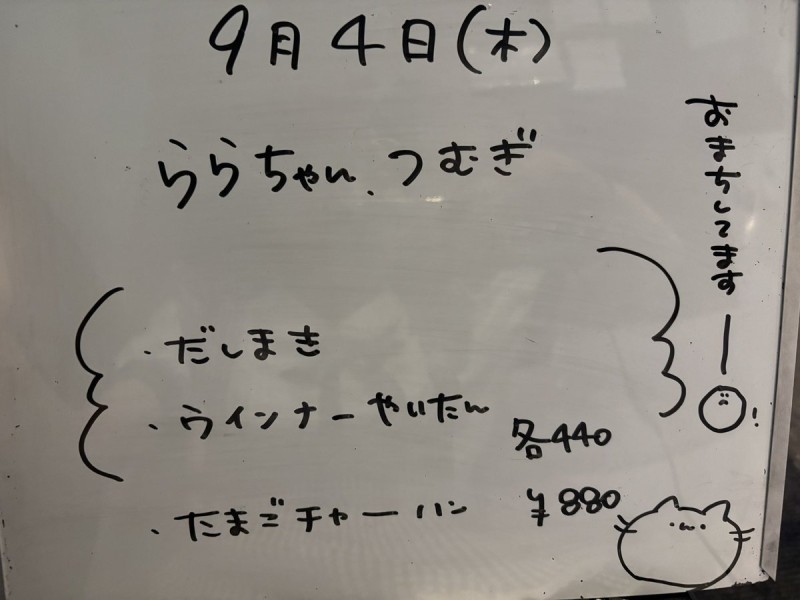 9月4日(木)
ららちゃん、つむぎ
おまちしてますー!
・だしまき
・ウインナーやいたん
各440
・たまごチャーハン ¥880